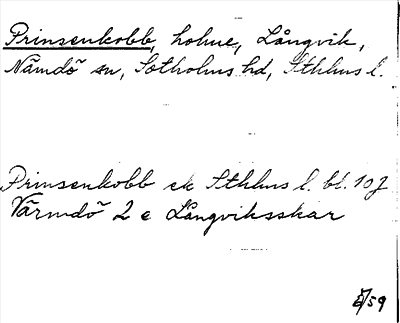 Prinsenkobb, holme, Långvik,
Nämdö sn, Sotholms hd, Sthlms l.
Prinsenkobb ek Sthlms l. bl. 10 J
Värmdö 2 e Långviksskär
/59